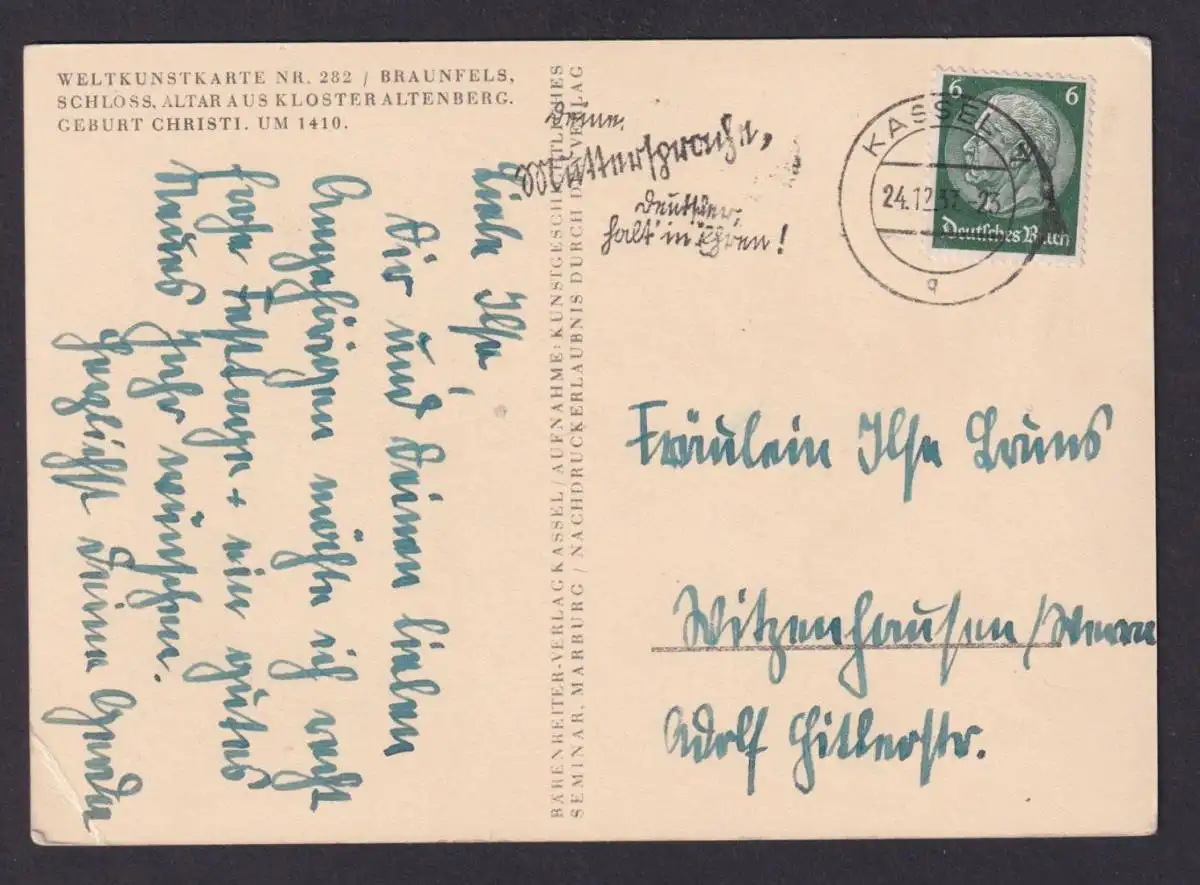 WELTKUNSTKARTE NR. 282 / BRAUNFELS,
SCHLOSS, ALTAR AUS KLOSTER ALTENBERG.
GEBURT CHRISTI. UM 1410.
Liebe Ilse,
Dir und Deinen lieben
Angehörigen möchte ich recht
frohe Festtage + ein gutes
Neues Jahr wünschen.
Herzlichst Deine
BÄRENREITER-VERLAG KASSEL / AUFNAHME: KUNSTGESCHICHTLICHES
SEMINAR, MARBURG / NACHDRUCKERLAUBNIS DURCH DEN VERLAG
Deine
Muttersprache,
Deutscher,
halt in Ehren!
KASSEL
24.12.37.-23
q
6 6
Deutsches Reich
Fräulein Ilse Bruns
Witzenhausen/Werra
Adolf Hitlerstr.